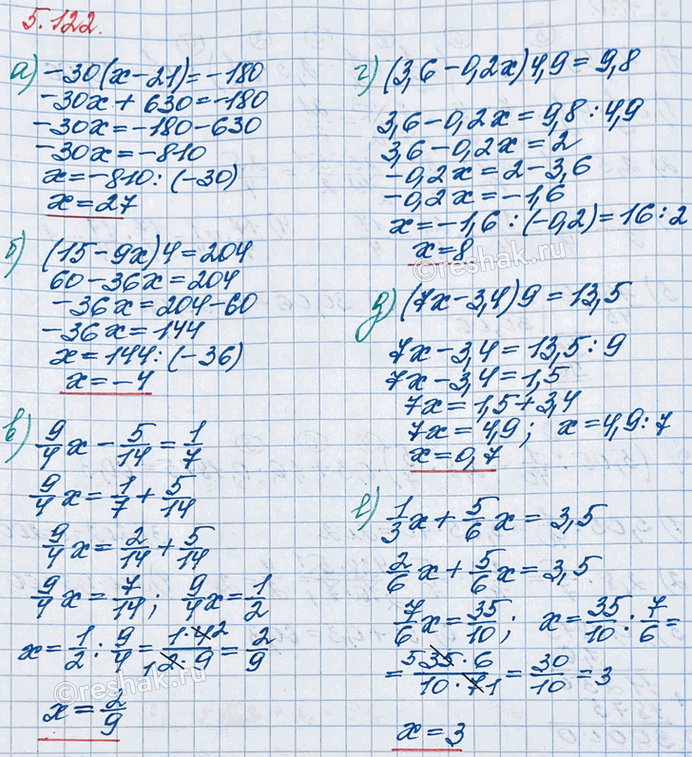 5.122.
а) -30(x-21)=-180
-30x+630=-180
-30x=-180-630
-30x=-810
x=-810:(-30)
x=27
б) (15-9x)4=204
60-36x=204
-36x=204-60
-36x=144
x=144:(-36)
x=-4
в) 9/4 x - 5/14 = 1/7
9/4 x = 1/7 + 5/14
9/4 x = 2/14 + 5/14
9/4 x = 7/14; 9/4 x = 1/2
x = 1/2 : 9/4 = 1·4 2/1 2·9 = 2/9
x = 2/9
г) (3,6-0,2x)4,9=9,8
3,6-0,2x=9,8:4,9
3,6-0,2x=2
-0,2x=2-3,6
-0,2x=-1,6
x=-1,6:(-0,2)=16:2
x=8
д) (7x-3,4)9=13,5
7x-3,4=13,5:9
7x-3,4=1,5
7x=1,5+3,4
7x=4,9; x=4,9:7
x=0,7
е) 1/3 x + 5/6 x = 3,5
2/6 x + 5/6 x = 3,5
7/6 x = 35/10; x = 35/10 : 7/6 =
= 5 35·6/10·7 1 = 30/10 = 3
x=3
©reshak.ru
©reshak.ru
©reshak.ru
©reshak.ru